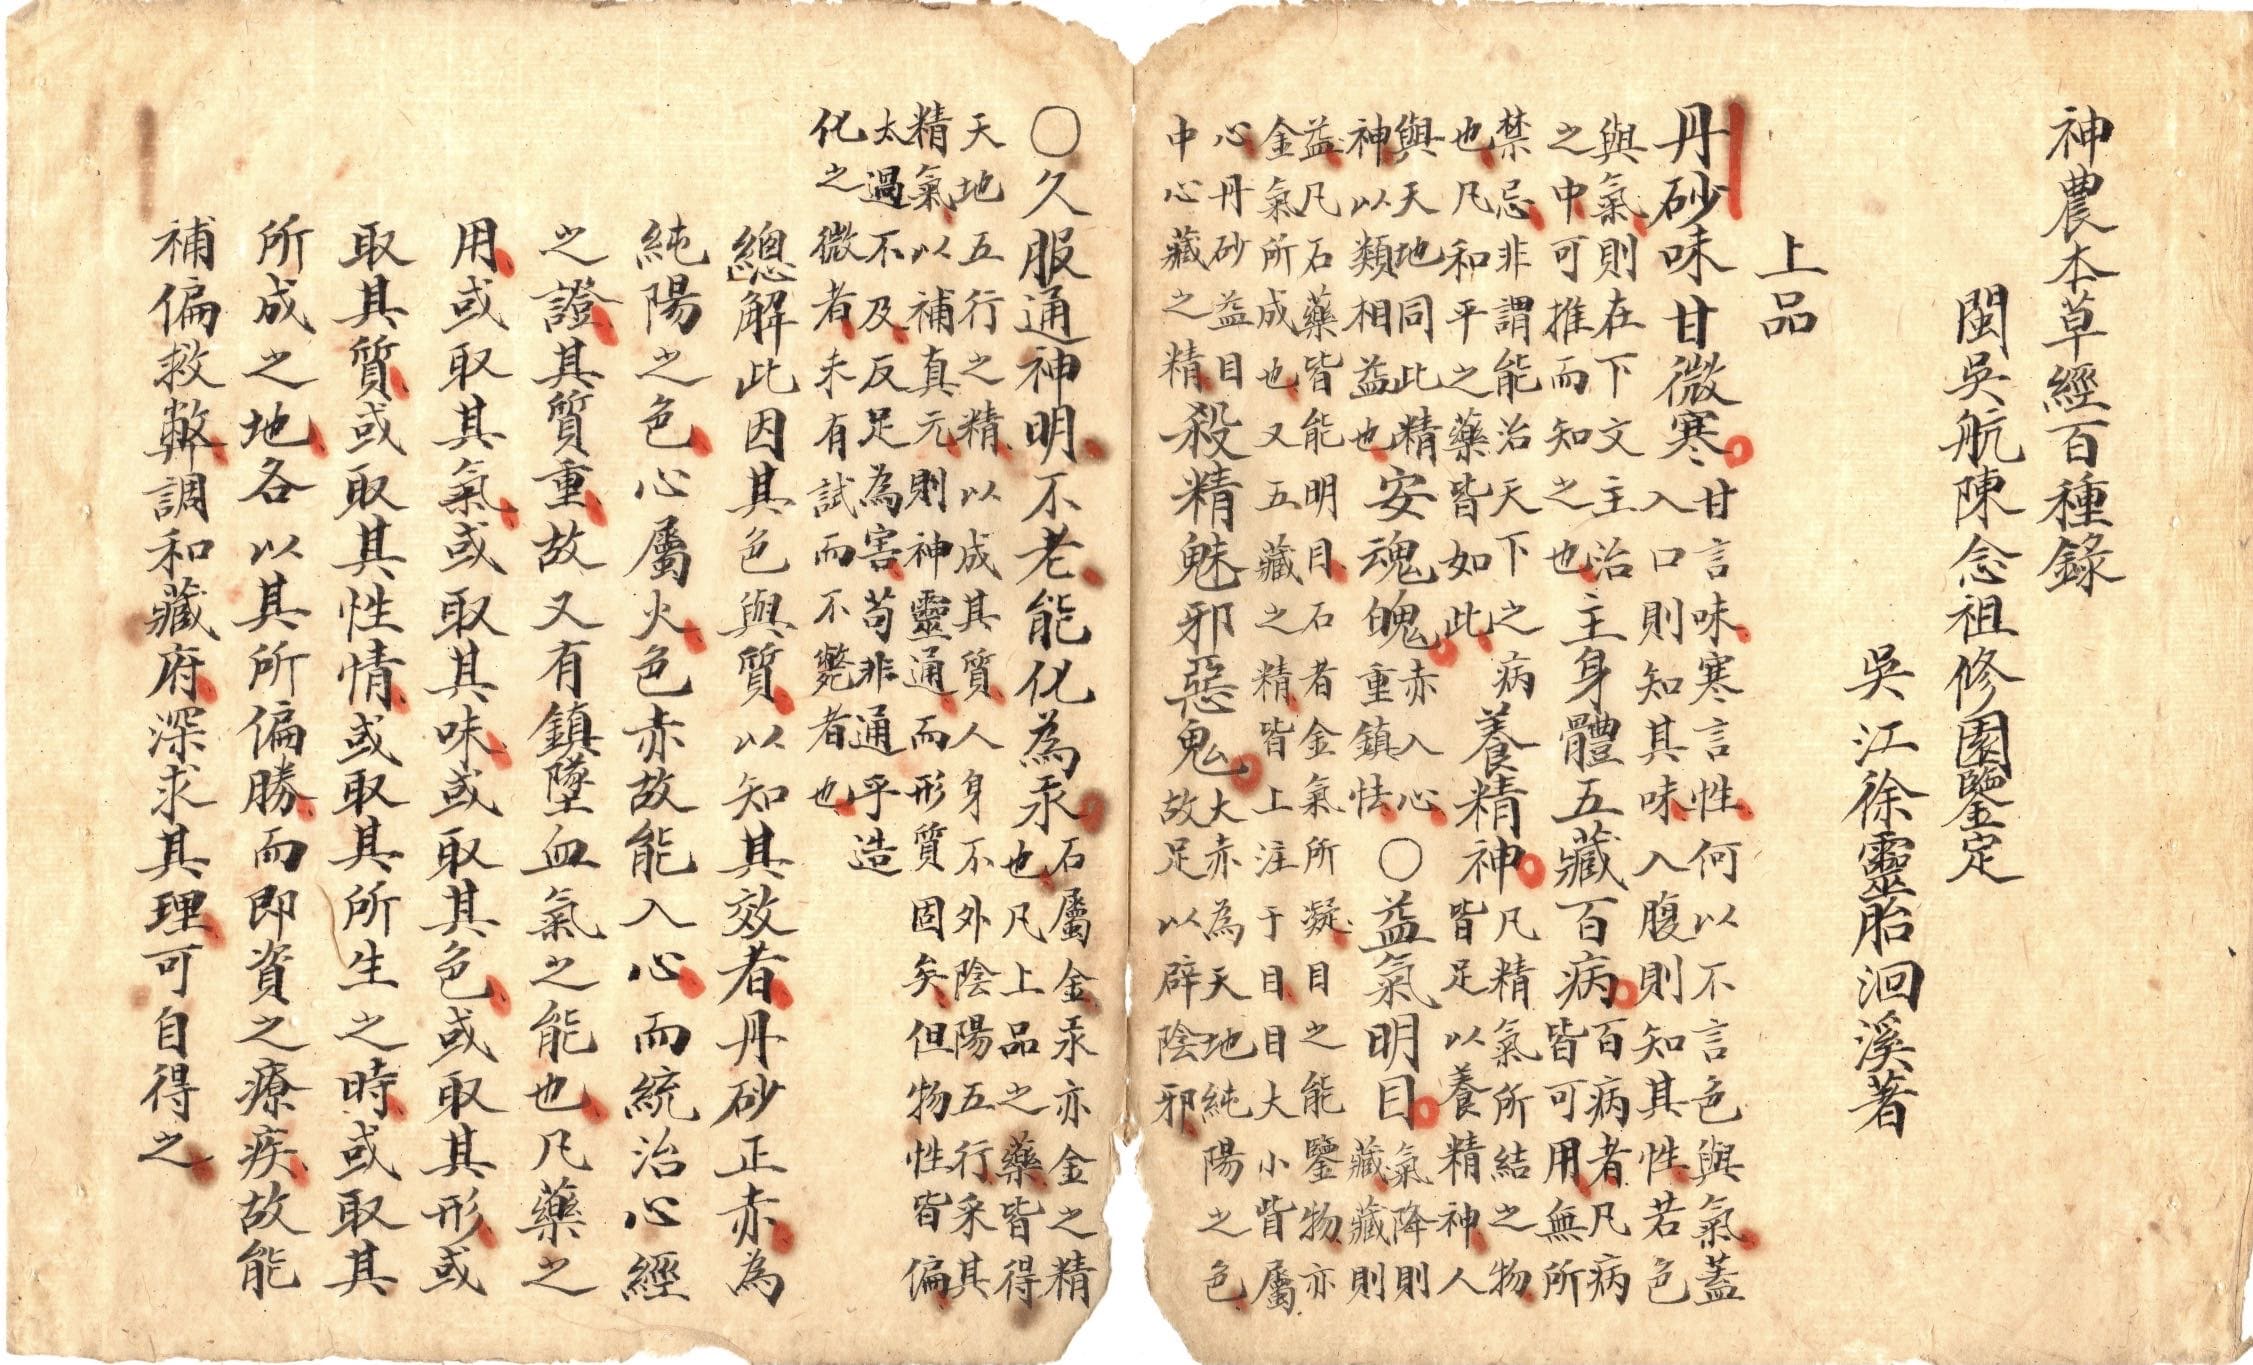 神農本草經百種錄
閩吳航陳念祖修園鑒定
吳江徐靈胎洄溪著
上品
丹砂味甘微寒甘言味寒言性何以不言色與氣蓋入口則知其味入腹則知其性若色
與氣則在下文主治之中可推而知之也主身體五藏百病百病者凡病皆可用無所
禁忌非謂能治天下之病也凡和平之藥皆如此養精神凡精氣所結之物皆足以養精神人
與天地同此精神以類相益也安魂魄赤入心重鎮怯〇益氣明目氣降則藏藏則
益凡石藥皆能明目石者金氣所凝目之能鑒物亦金氣所成也又五藏之精皆上注于目目大小皆屬
心丹砂益目中心藏之精殺精魅邪惡鬼大赤為天地純陽之色故足以辟陰邪
〇久服通神明不老能化為汞石屬金汞亦金之精也凡上品之藥皆得
天地五行之精以成其質人身不外陰陽五行采其精氣以補真元則神靈通而形質固矣但物性皆偏
太過不及反足為害苟非通乎造化之微者未有試而不斃者也
總解此因其色與質以知其效者丹砂正赤為
純陽之色心屬火色赤故能入心而統治心經
之證其質重故又有鎮墜血氣之能也凡藥之
用或取其氣或取其味或取其色或取其形或
取其質或取其性情或取其所生之時或取其
所成之地各以其所偏勝而即資之療疾故能
補偏救弊調和藏府深求其理可自得之